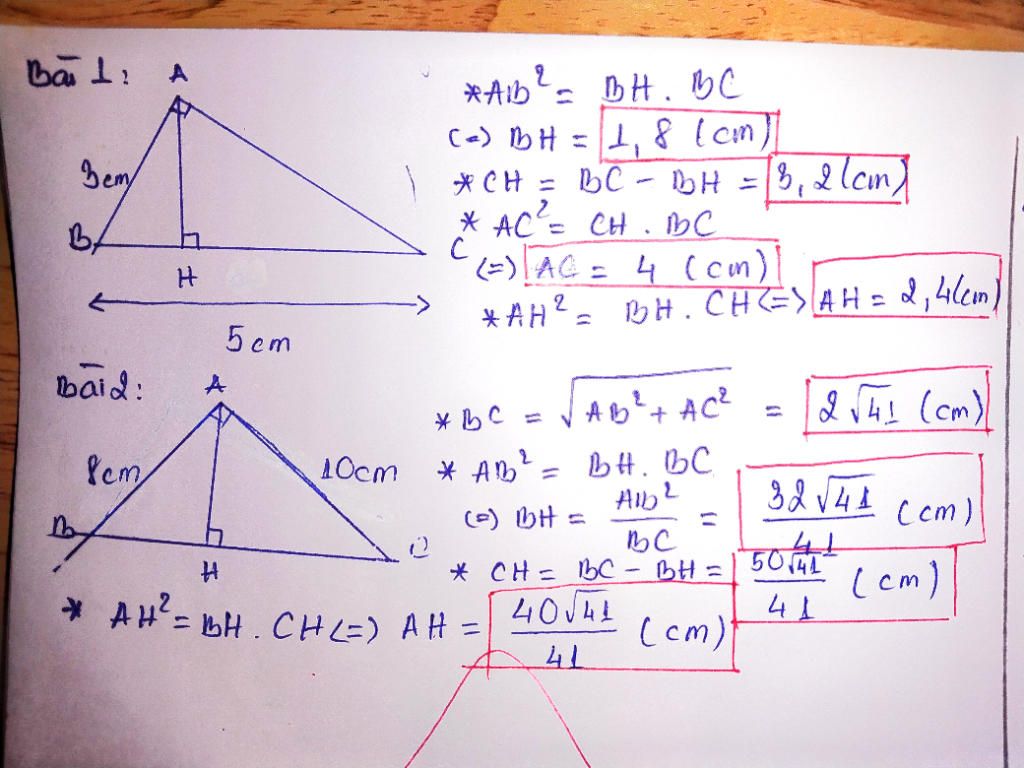 Bài 1:
A
3cm
B
H
C
5cm
*AB² = BH . BC
(=) BH = 1,8 (cm)
*CH = BC - BH = 3,2 (cm)
* AC² = CH . BC
(=) AC = 4 (cm)
*AH² = BH . CH <=> AH = 2,4 (cm)
Bài 2:
A
8cm
10cm
B
H
C
*BC = √AB² + AC² = 2√41 (cm)
* AB² = BH . BC
(=) BH = AB²/BC = 32√41/41 (cm)
* CH = BC - BH = 50√41/41 (cm)
* AH² = BH . CH <=) AH = 40√41/41 (cm)